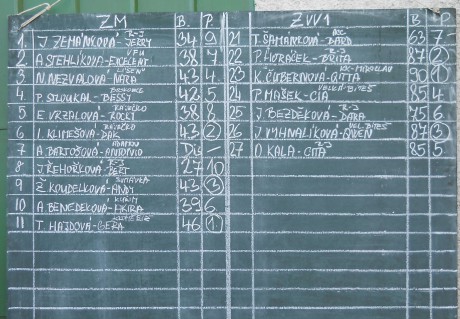 ZM B. P. ZVV1 B P
1. J. ZEMÁNKOVÁ - JERRY R-J 34 9
2 A STEHLÍKOVÁ - EXCELENT VFU 38 7
3 N. NEZVALOVÁ - NARA LÍŠEŇ 43 4
4 P. STLOUKAL - BESSY 42 5
5 E VRZALOVÁ - ROCKY 38 8
6 I. KLIMEŠOVÁ - DAK 43 2
7 A BARTOŠOVÁ - ANTONIO Dis -
8 J. ŘEHOŘKOVÁ - BERT R-J 27 10
9 Ž KOUDELKOVÁ - ANDY 43 3
10 A BENEDEKOVÁ - AKIRA 39 6
11 T. HAJDOVÁ - GERA 46 1
21 T. ŠAMÁNKOVÁ - DARO 63 7
22 P. HORÁČEK - BRITA R-J 87 2
23 K. ČUBERNOVÁ - GITTA KK-MIROSLAV 90 1
24 P. MAŠEK - CIA VELKÁ BÍTEŠ 85 4
25 J. BEZDĚKOVÁ - DARA R-J 75 6
26 J. VYHNALÍKOVÁ - QUEEN VEL. BÍTEŠ 87 3
27 O. KALA - CITA R-J 85 5